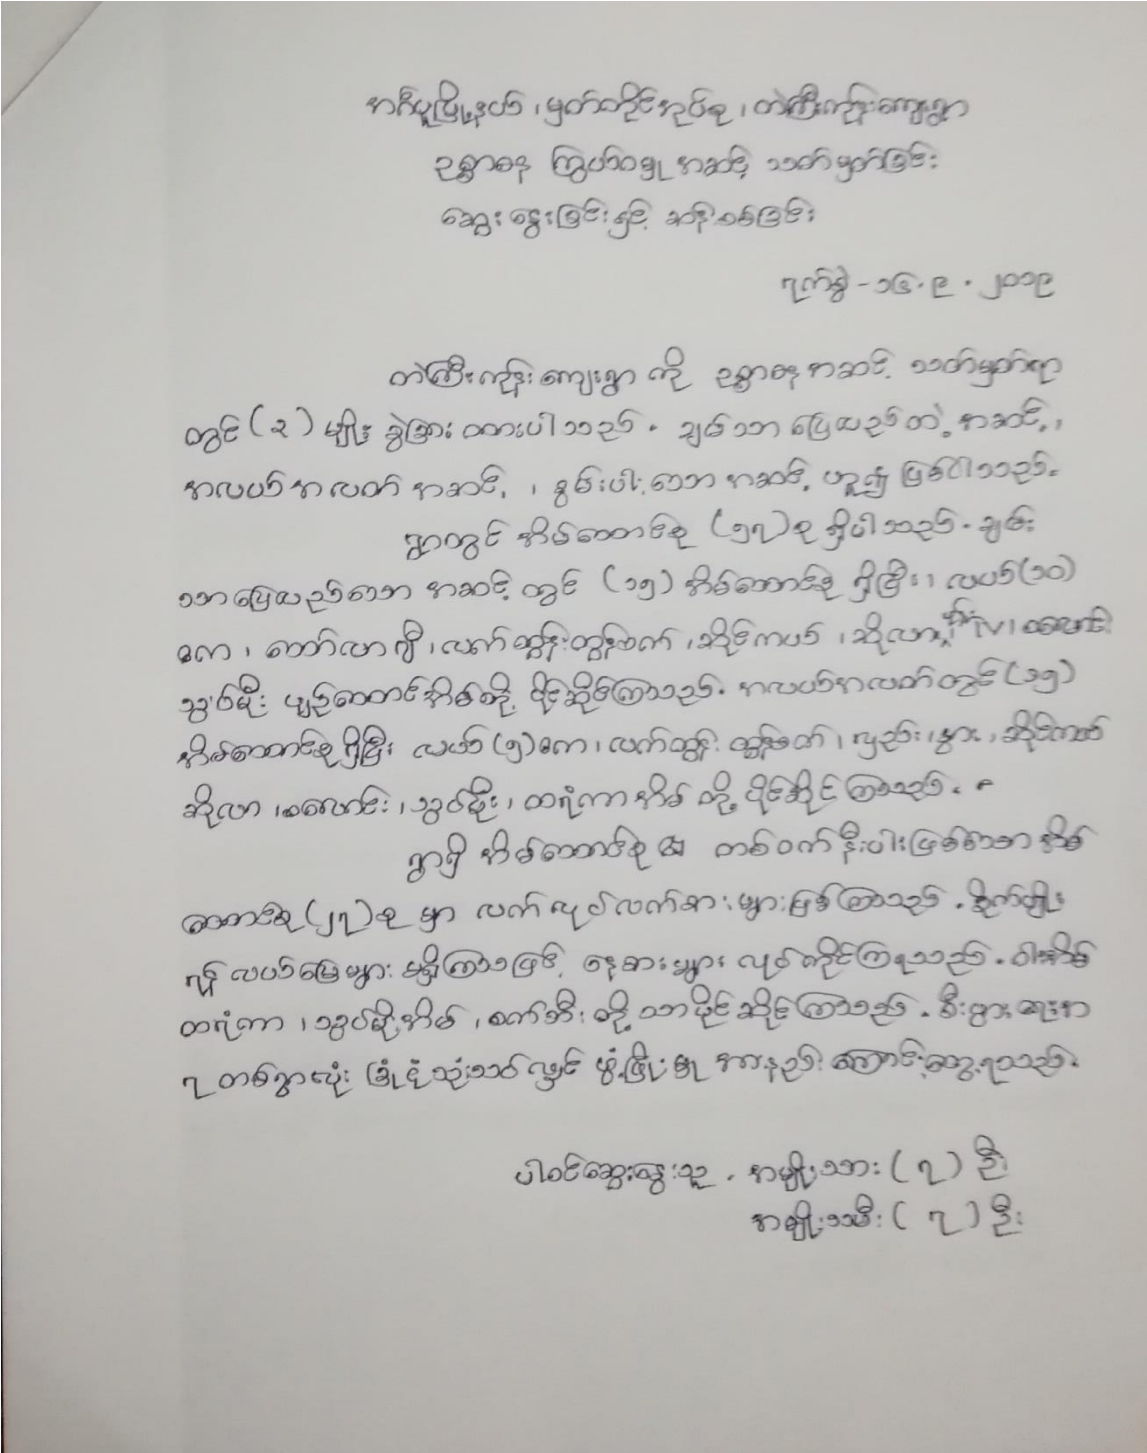 အင်္ဂပူမြို့နယ်၊ မှတ်တိုင်အုပ်စု၊ တဲကြီးကုန်းကျေးရွာ
ဥစ္စာဓန ကြွယ်ဝမှု အဆင့် သတ်မှတ်ခြင်း
ဆွေးနွေးခြင်းနှင့် ဆန်းစစ်ခြင်း
ရက်စွဲ - ၁၆.၉.၂၀၁၉
တဲကြီးကုန်းကျေးရွာ ကို ဥစ္စာဓနအဆင့် သတ်မှတ်ရာ
တွင် (၃) မျိုး ခွဲခြား ထားပါသည်။ ချမ်သာ ပြေလည်တဲ့ အဆင့်၊
အလယ်အလတ် အဆင့်၊ နွမ်းပါးသော အဆင့် ဟူ၍ ဖြစ်ပါသည်။
ရွာတွင် အိမ်ထောင်စု (၅၇) စု ရှိပါသည်။ ချမ်း
သာပြေလည်သော အဆင့် တွင် (၁၅) အိမ်ထောင်စု ရှိပြီး၊ လယ်(၁၀)
ဧက၊ ထော်လာဂျီ၊ လက်တွန်းထွန်စက်၊ ဆိုင်ကယ်၊ ဆိုလာ၊ TV၊ စလောင်း
သွပ်မိုး ပျဉ်ထောင်အိမ်တို့ ပိုင်ဆိုင်ကြသည်။ အလယ်အလတ်တွင် (၁၅)
အိမ်ထောင်စု ရှိပြီး လယ် (၅) ဧက၊ လက်တွန်း ထွန်စက်၊ လှည်း၊ နွား၊ ဆိုင်ကယ်
ဆိုလာ၊ စလောင်း၊ သွပ်မိုး၊ ထရံကာအိမ် တို့ ပိုင်ဆိုင်ကြသည်။
ရွာရှိ အိမ်ထောင်စု ၏ တစ်ဝက် နီးပါးဖြစ်သော အိမ်
ထောင်စု (၂၇) စု မှာ လက်လုပ်လက်စားများဖြစ်ကြသည်။ စိုက်ပျိုး
ရန် လယ်မြေများ မရှိကြသဖြင့် နေစားများ လုပ်ကိုင်ကြရသည်။ ဝါးအိမ်
ထရံကာ၊ သွပ်မိုးအိမ်၊ စက်ဘီး တို့ သာ ပိုင်ဆိုင်ကြသည်။ စီးပွားရေးအ
ရ တစ်ရွာလုံး ခြုံငုံသုံးသပ်လျှင် ဖွံ့ဖြိုးမှု အားနည်းကြောင်းတွေ့ရသည်။
ပါဝင်ဆွေးနွေးသူ - အမျိုးသား (၇) ဦး
အမျိုးသမီး (၇) ဦး